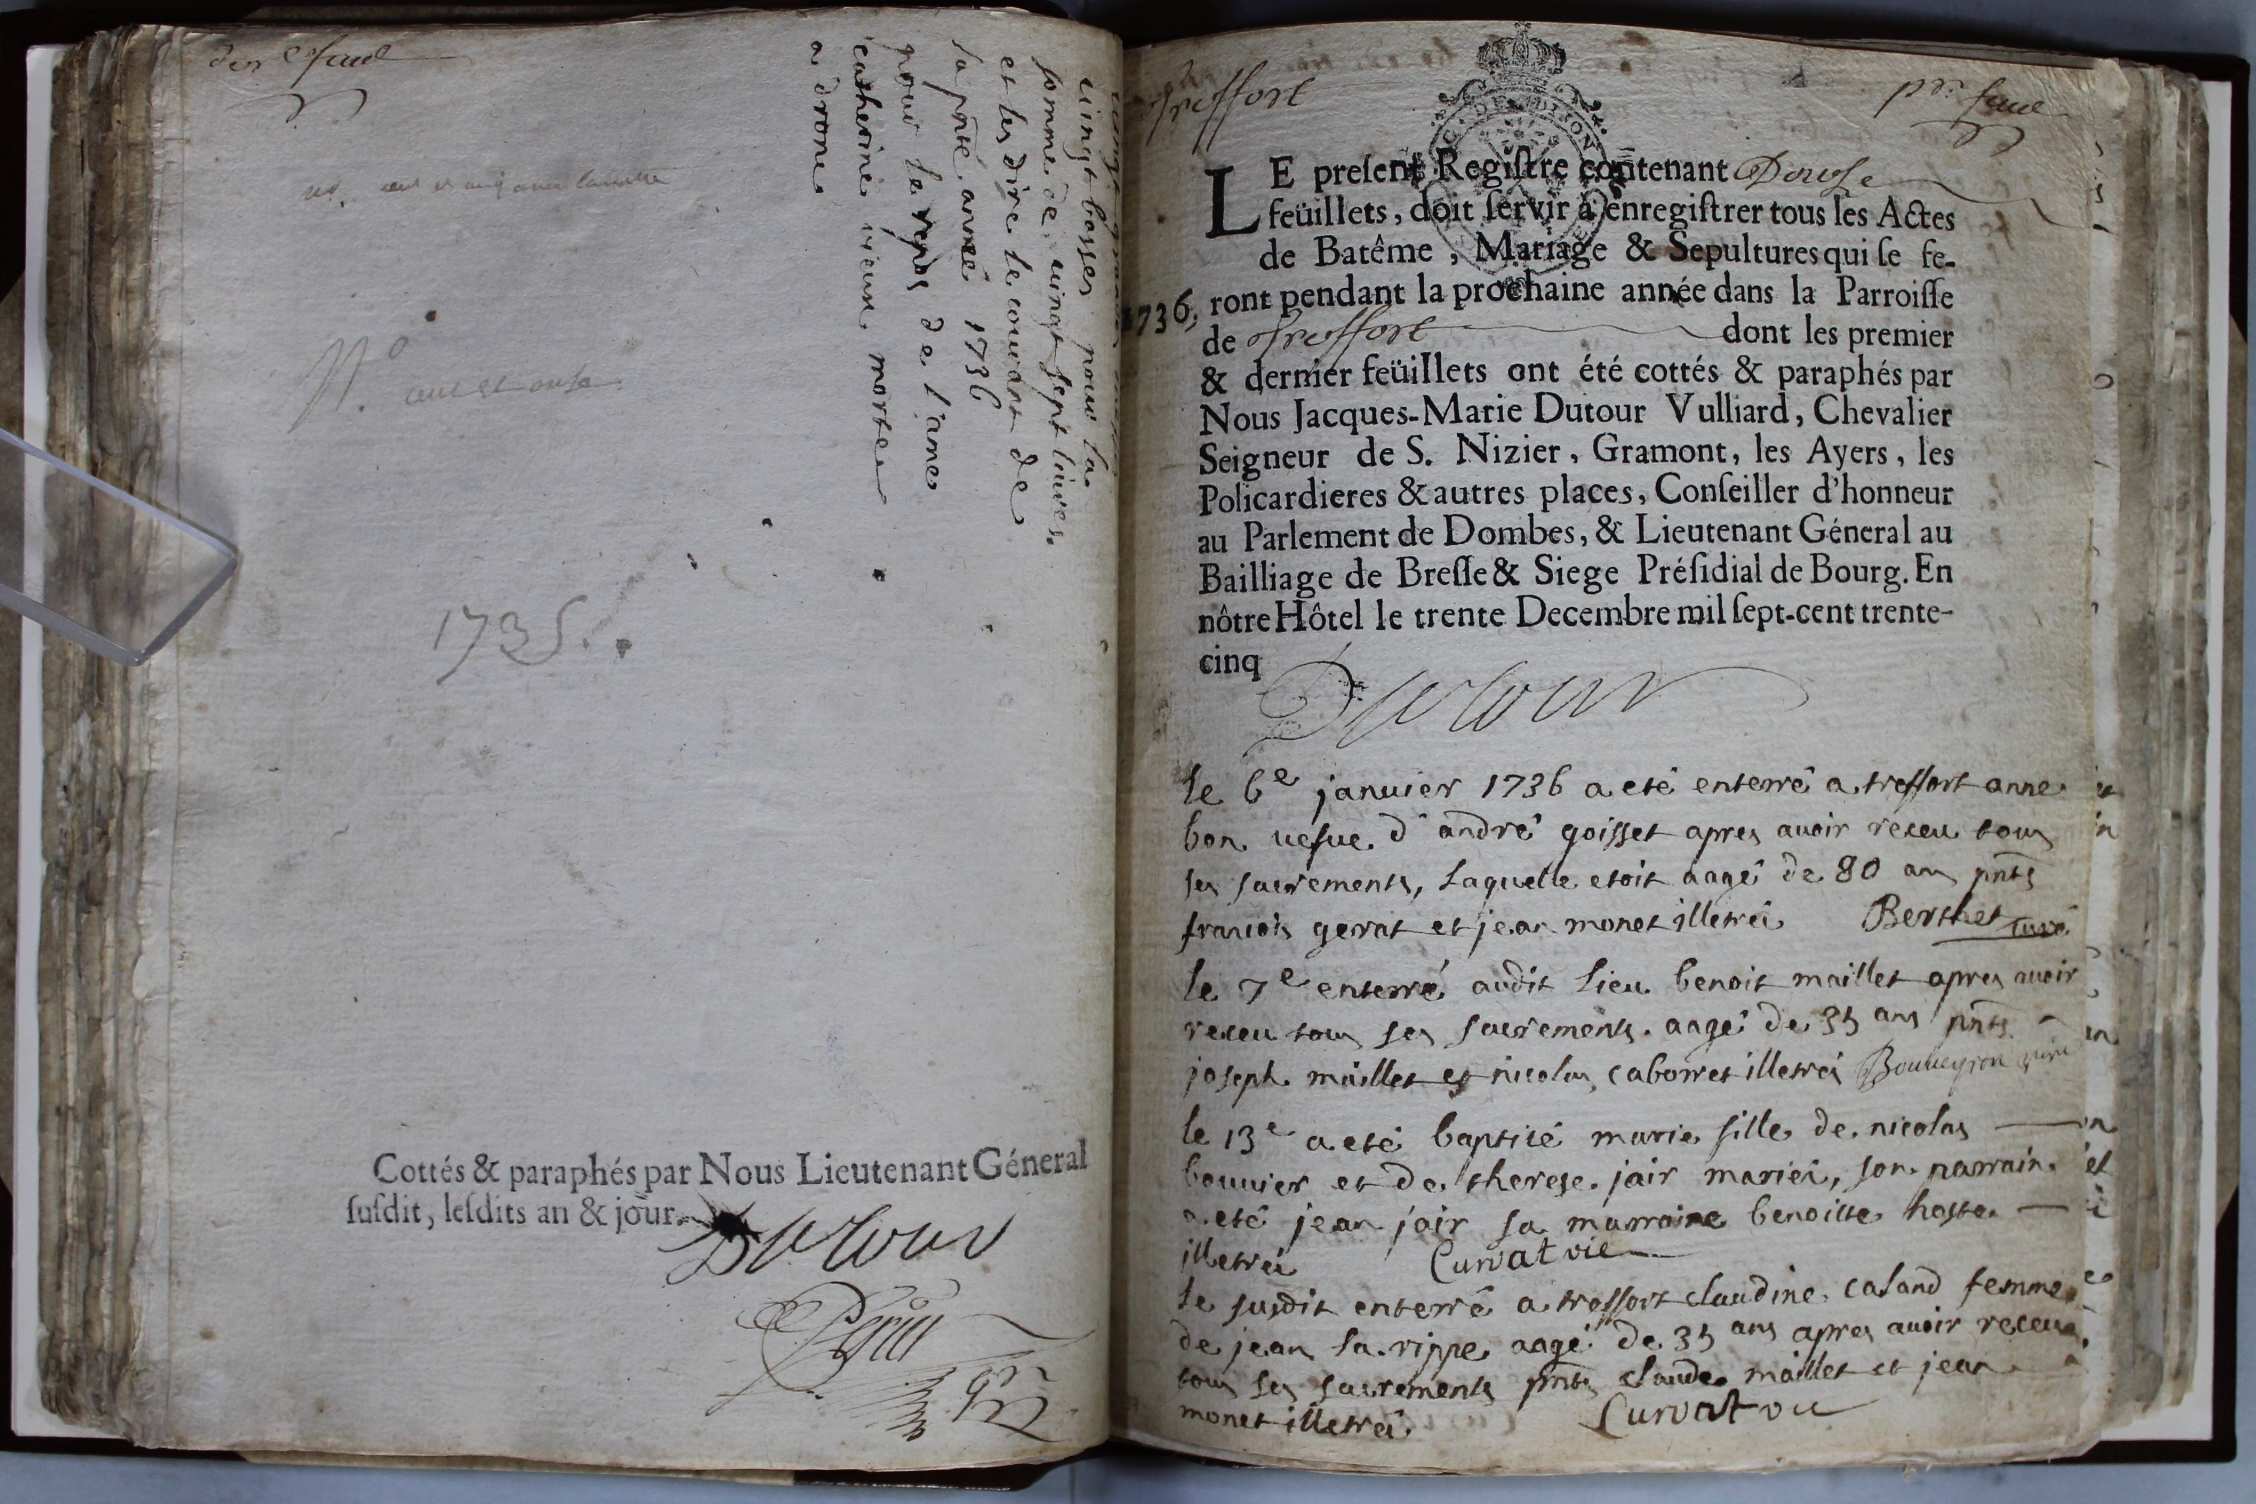 der feuil
No. cent et onze
1735.
vingt besses pour la
somme de vingt sept livres.
et les dire le courant de
sa pnte année 1736
pour le repos de l'ame
catherine vieux morte
a drom
Cottés & paraphés par Nous Lieutenant Géneral
susdit, lesdits an & jour.
Dutour
Treffort
pr. feuil
LE present Registre contenant Douse
feüillets, doit servir à enregistrer tous les Actes
de Batême, Mariage & Sepultures qui se fe-
1736, ront pendant la prochaine année dans la Parroisse
de Treffort dont les premier
& dernier feüillets ont été cottés & paraphés par
Nous Jacques-Marie Dutour Vulliard, Chevalier
Seigneur de S. Nizier, Gramont, les Ayers, les
Policardieres & autres places, Conseiller d'honneur
au Parlement de Dombes, & Lieutenant Géneral au
Bailliage de Bresse & Siege Présidial de Bourg. En
nôtre Hôtel le trente Decembre mil sept-cent trente-
cinq
Dutour
le 6e janvier 1736 a eté enterré a treffort anne
bon vefve d'andré goisset apres avoir receu tous
ses sacrements, laquelle etoit aagé de 80 ans pnts
francois gerat et jean monet illetrés Berthet curé
le 7e enterré audit lieu benoit maillet apres avoir
receu tous ses sacrements. aagé de 35 ans pnts
joseph maillet et nicolas caborret illetrés Bouveyron
le 13e a eté baptisé marie fille de nicolas
bouvier et de therese jair mariés, son parrain
a eté jean jair sa marraine benoitte hoste
illetrés Curvat vic
le susdit enterré a treffort claudine caland femme
de jean la rippe aagé de 35 ans apres avoir receu
tous ses sacrements pnts claude maillet et jean
monet illetrés. Curvat vic